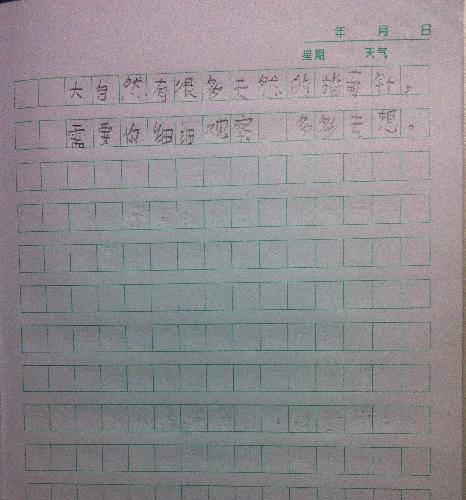 年 月 日
星期 天气
大自然有很多天然的指南针。
需要你细细观察。多多去想。